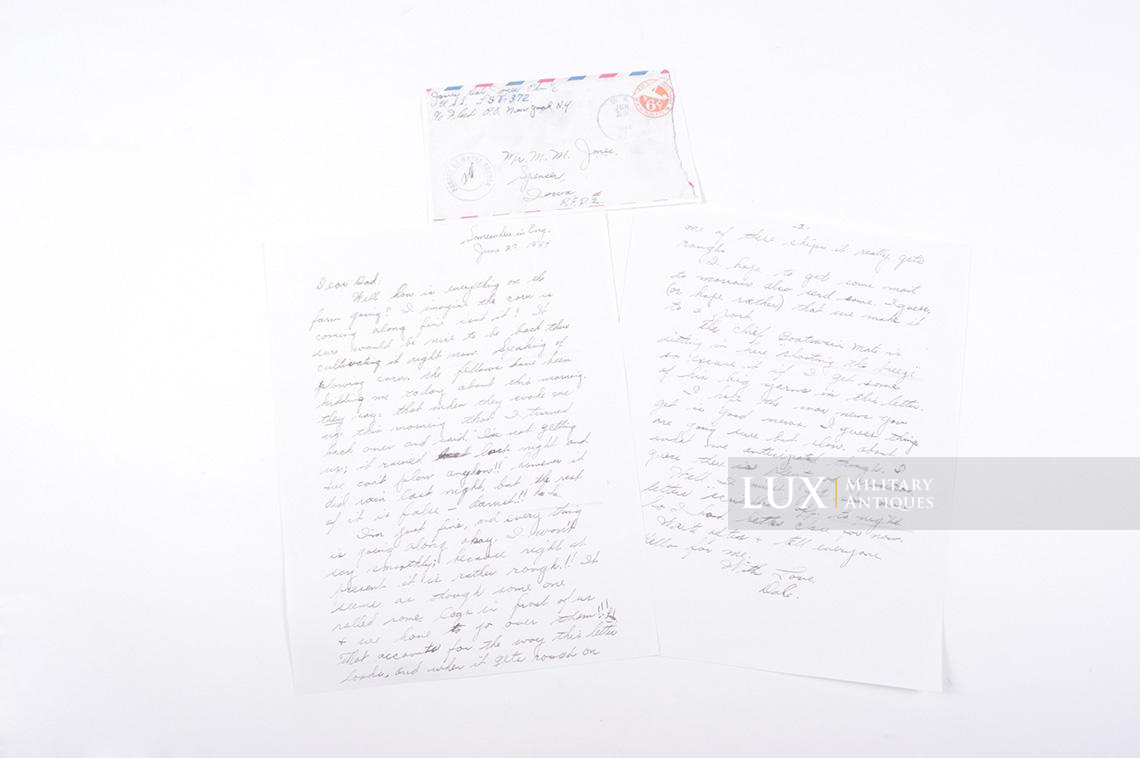 James Dale Jones
U.S.S. LST-372
℅ Fleet P.O. New York, N.Y.
6¢
Mr. M. M. Jones.
Spencer,
Iowa
R.F.D. 2.
Somewhere in Eng.
June 27, 1944
Dear Dad:
Well how is everything on the
farm going? I imagine the corn is
coming along fine isn't it? It
sure would be nice to be back there
cultivating it right now. Speaking of
plowing corn, the fellows have been
kidding me today about this morning.
they say: that when they woke me
up this morning that I turned
back over and said: I'm not getting
up; it rained last night and
we can't plow anyhow!! however it
did rain last night, but the rest
of it is false – darnit!! ha ha
I'm just fine, and every thing
is going along okay. I won't
say smoothly; because right at
present it is rather rough!! It
seems as though some one
rolled some logs in front of us
+ we have to go over them!!!
That accounts for the way this letter
looks, and when it gets rough on
-2-
one of these ships it really gets
rough.
I hope to get some mail
to morrow also send some. I guess,
(or hope rather) that we make it
to a port.
The chief Boatswain Mate is
sitting in here shooting the breeze
so excuse it if I get some
of his big yarns in this letter.
I hope the war news you
get is good news. I guess things
are going sure but slow, about
what we anticipated though. I
guess there is
Well
letter to night
so I had better close for now.
Write often + tell everyone
hello for me.
With Love,
Dale.
LUX MILITARY
ANTIQUES